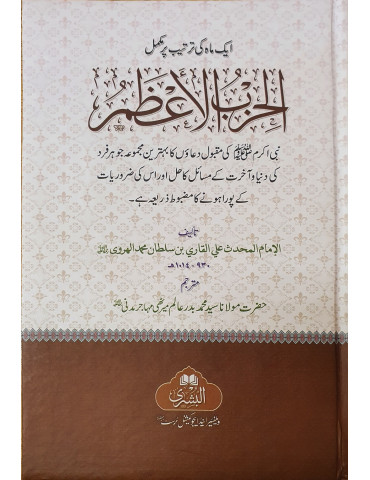 ایک ماہ کی ترتیب پر مکمل
الحِزبُ الأَعظَمُ
نبی اکرم ﷺ کی مقبول دعاؤں کا بہترین مجموعہ جو ہر فرد
کی دنیا و آخرت کے مسائل کا حل اور اس کی ضروریات
کے پورا ہونے کا مضبوط ذریعہ ہے۔
تالیف
الإمام المحدث علي القاري بن سلطان محمد الهروي
۹۳۰ - ۱۰۱۴ھ
مترجم
حضرت مولانا سید محمد بدر عالم میرٹھی مہاجر مدنی
البشری
ویلفیئر اینڈ ایجوکیشنل ٹرسٹ